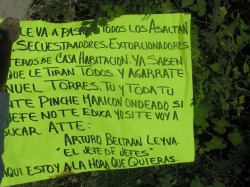 LE VA A PASAR A TODOS LOS ASALTAN
SECUESTRADORES, EXTORCIONADORES
TEROS DE CASA HABITACION. YA SABEN
QUE LE TIRAN TODOS Y AGARRATE
NUEL TORRES, TU Y TODA TU
NTE PINCHE MARICON ONDEADO SI
JEFE NO TE EDUCA YO SI TE VOY A
DUCAR. ATTE:
ARTURO BELTRAN LEYVA.
"EL JEFE DE JEFES"
AQUI ESTOY A LA HORA QUE QUIERAS.